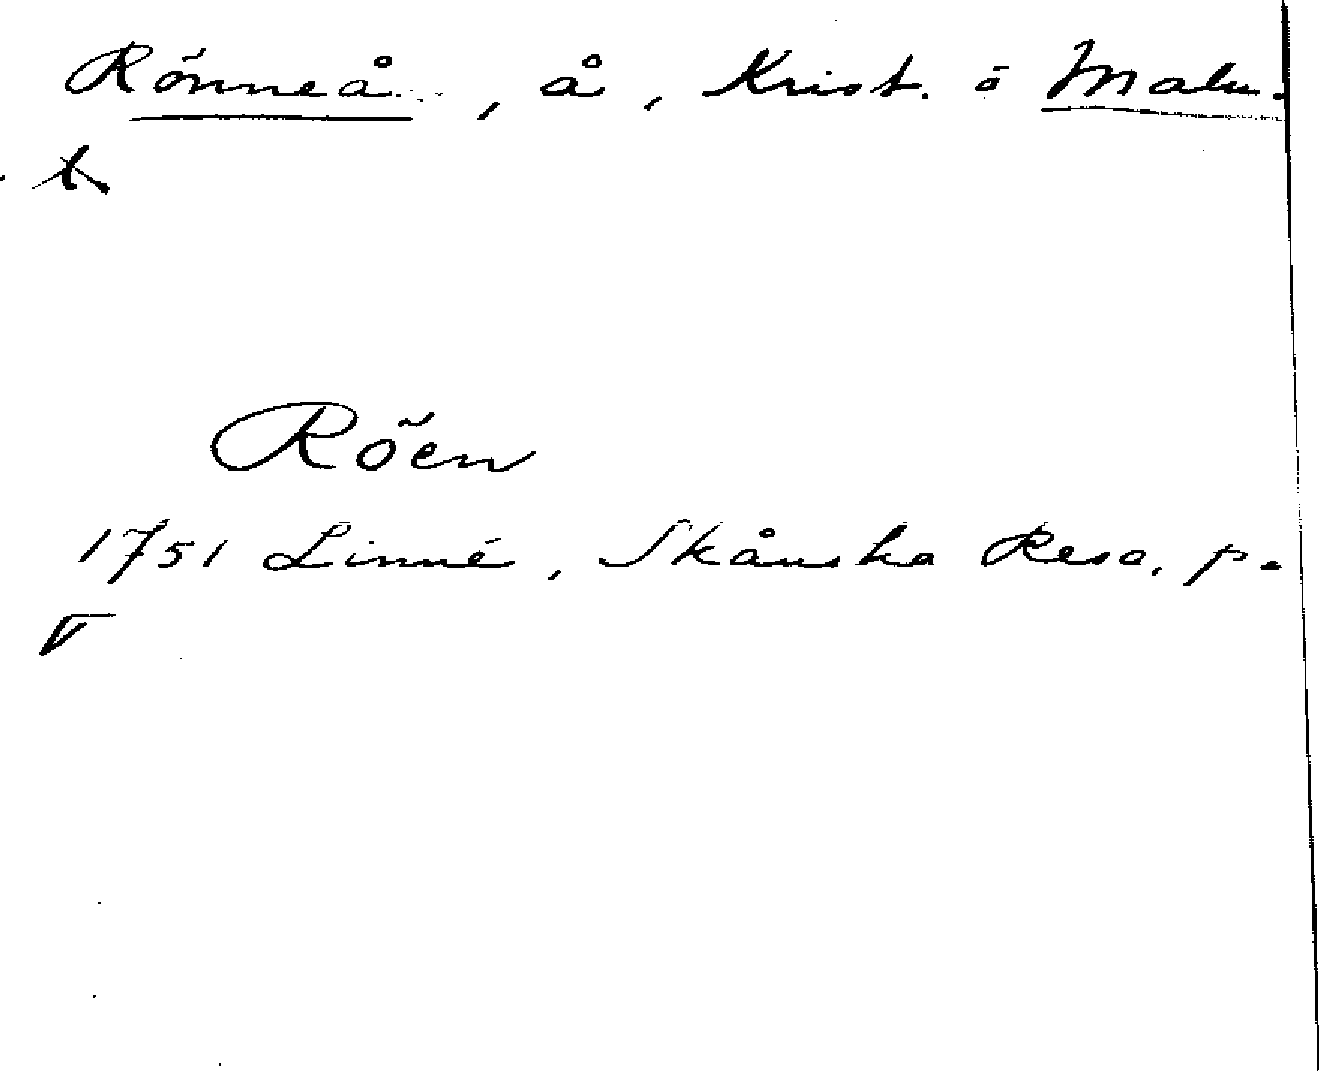 Rönneå, å, Krist. o Malm.
Röen
1751 Linné, Skånska Resa, p.